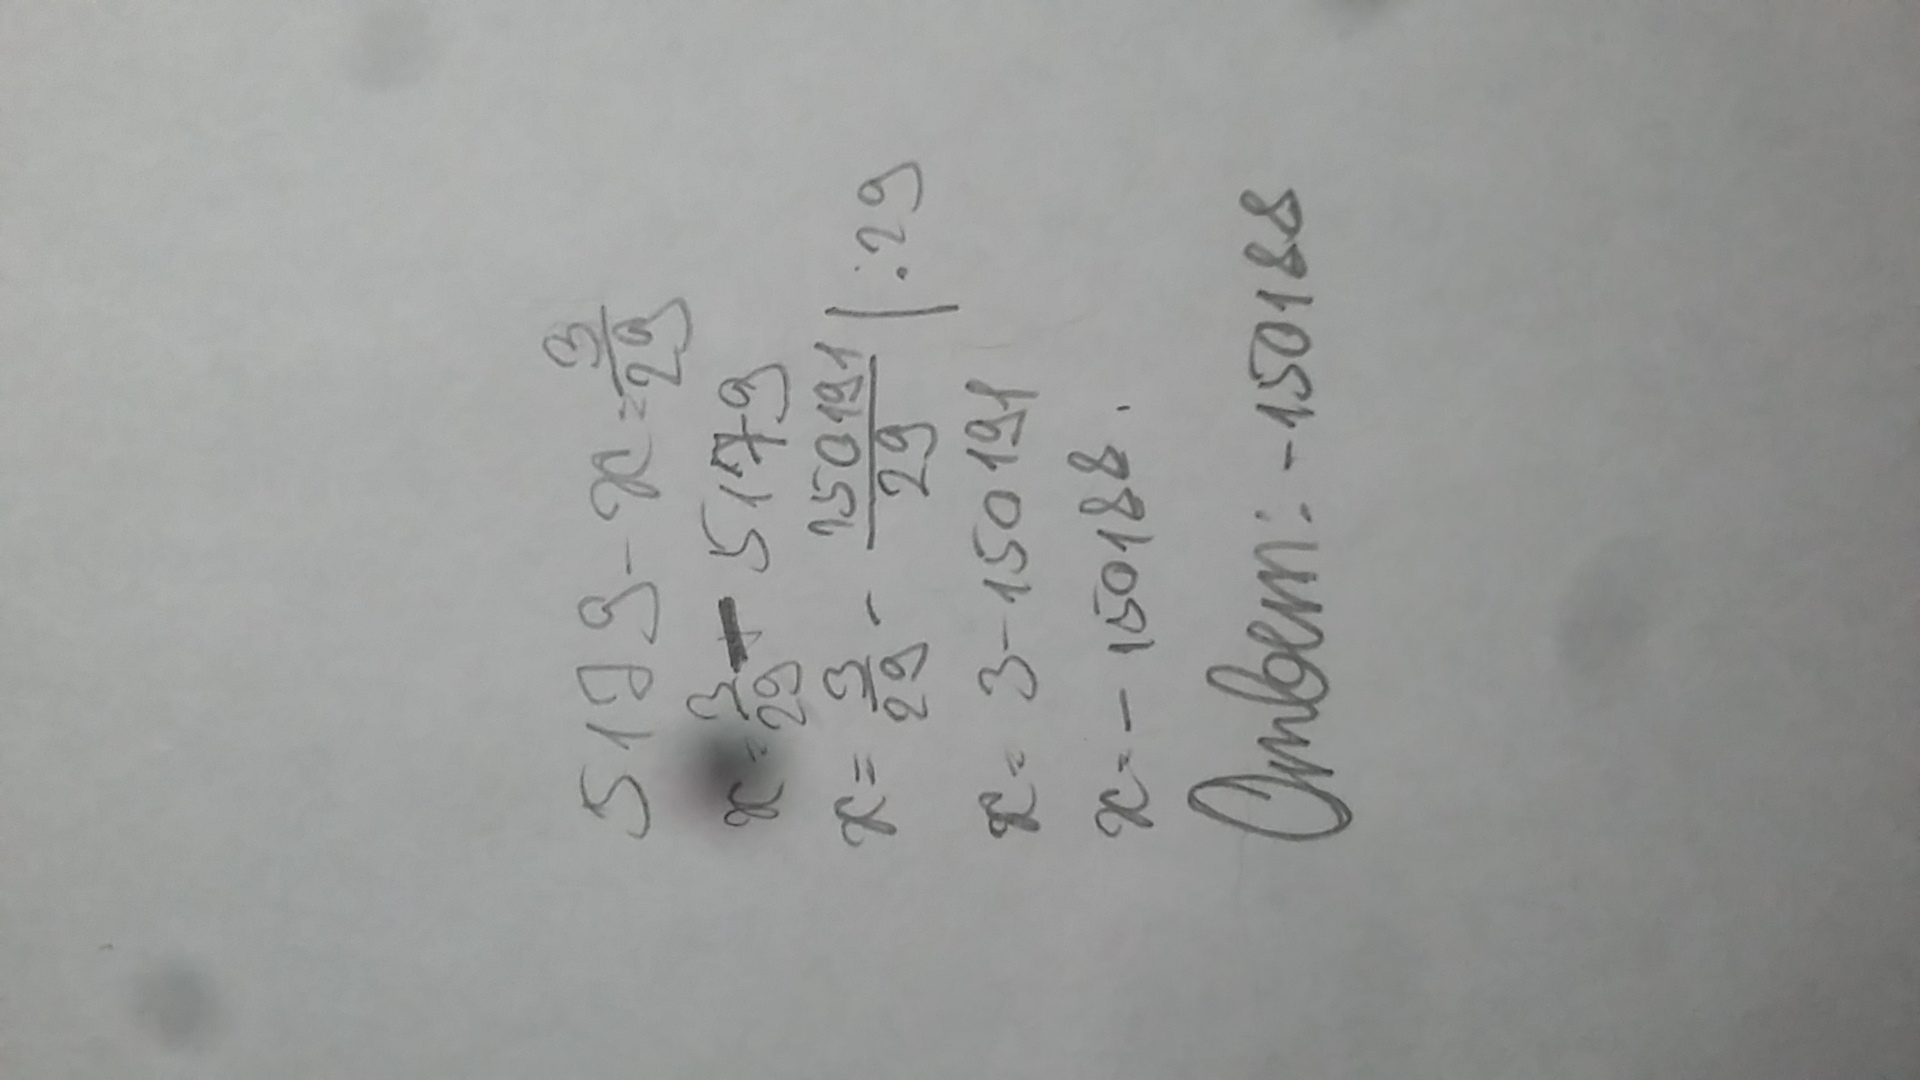 5179-x=3/29
x=3/29-5179
x=3/29-150191/29 |:29
x=3-150191
x=-150188.
Ответ: -150188